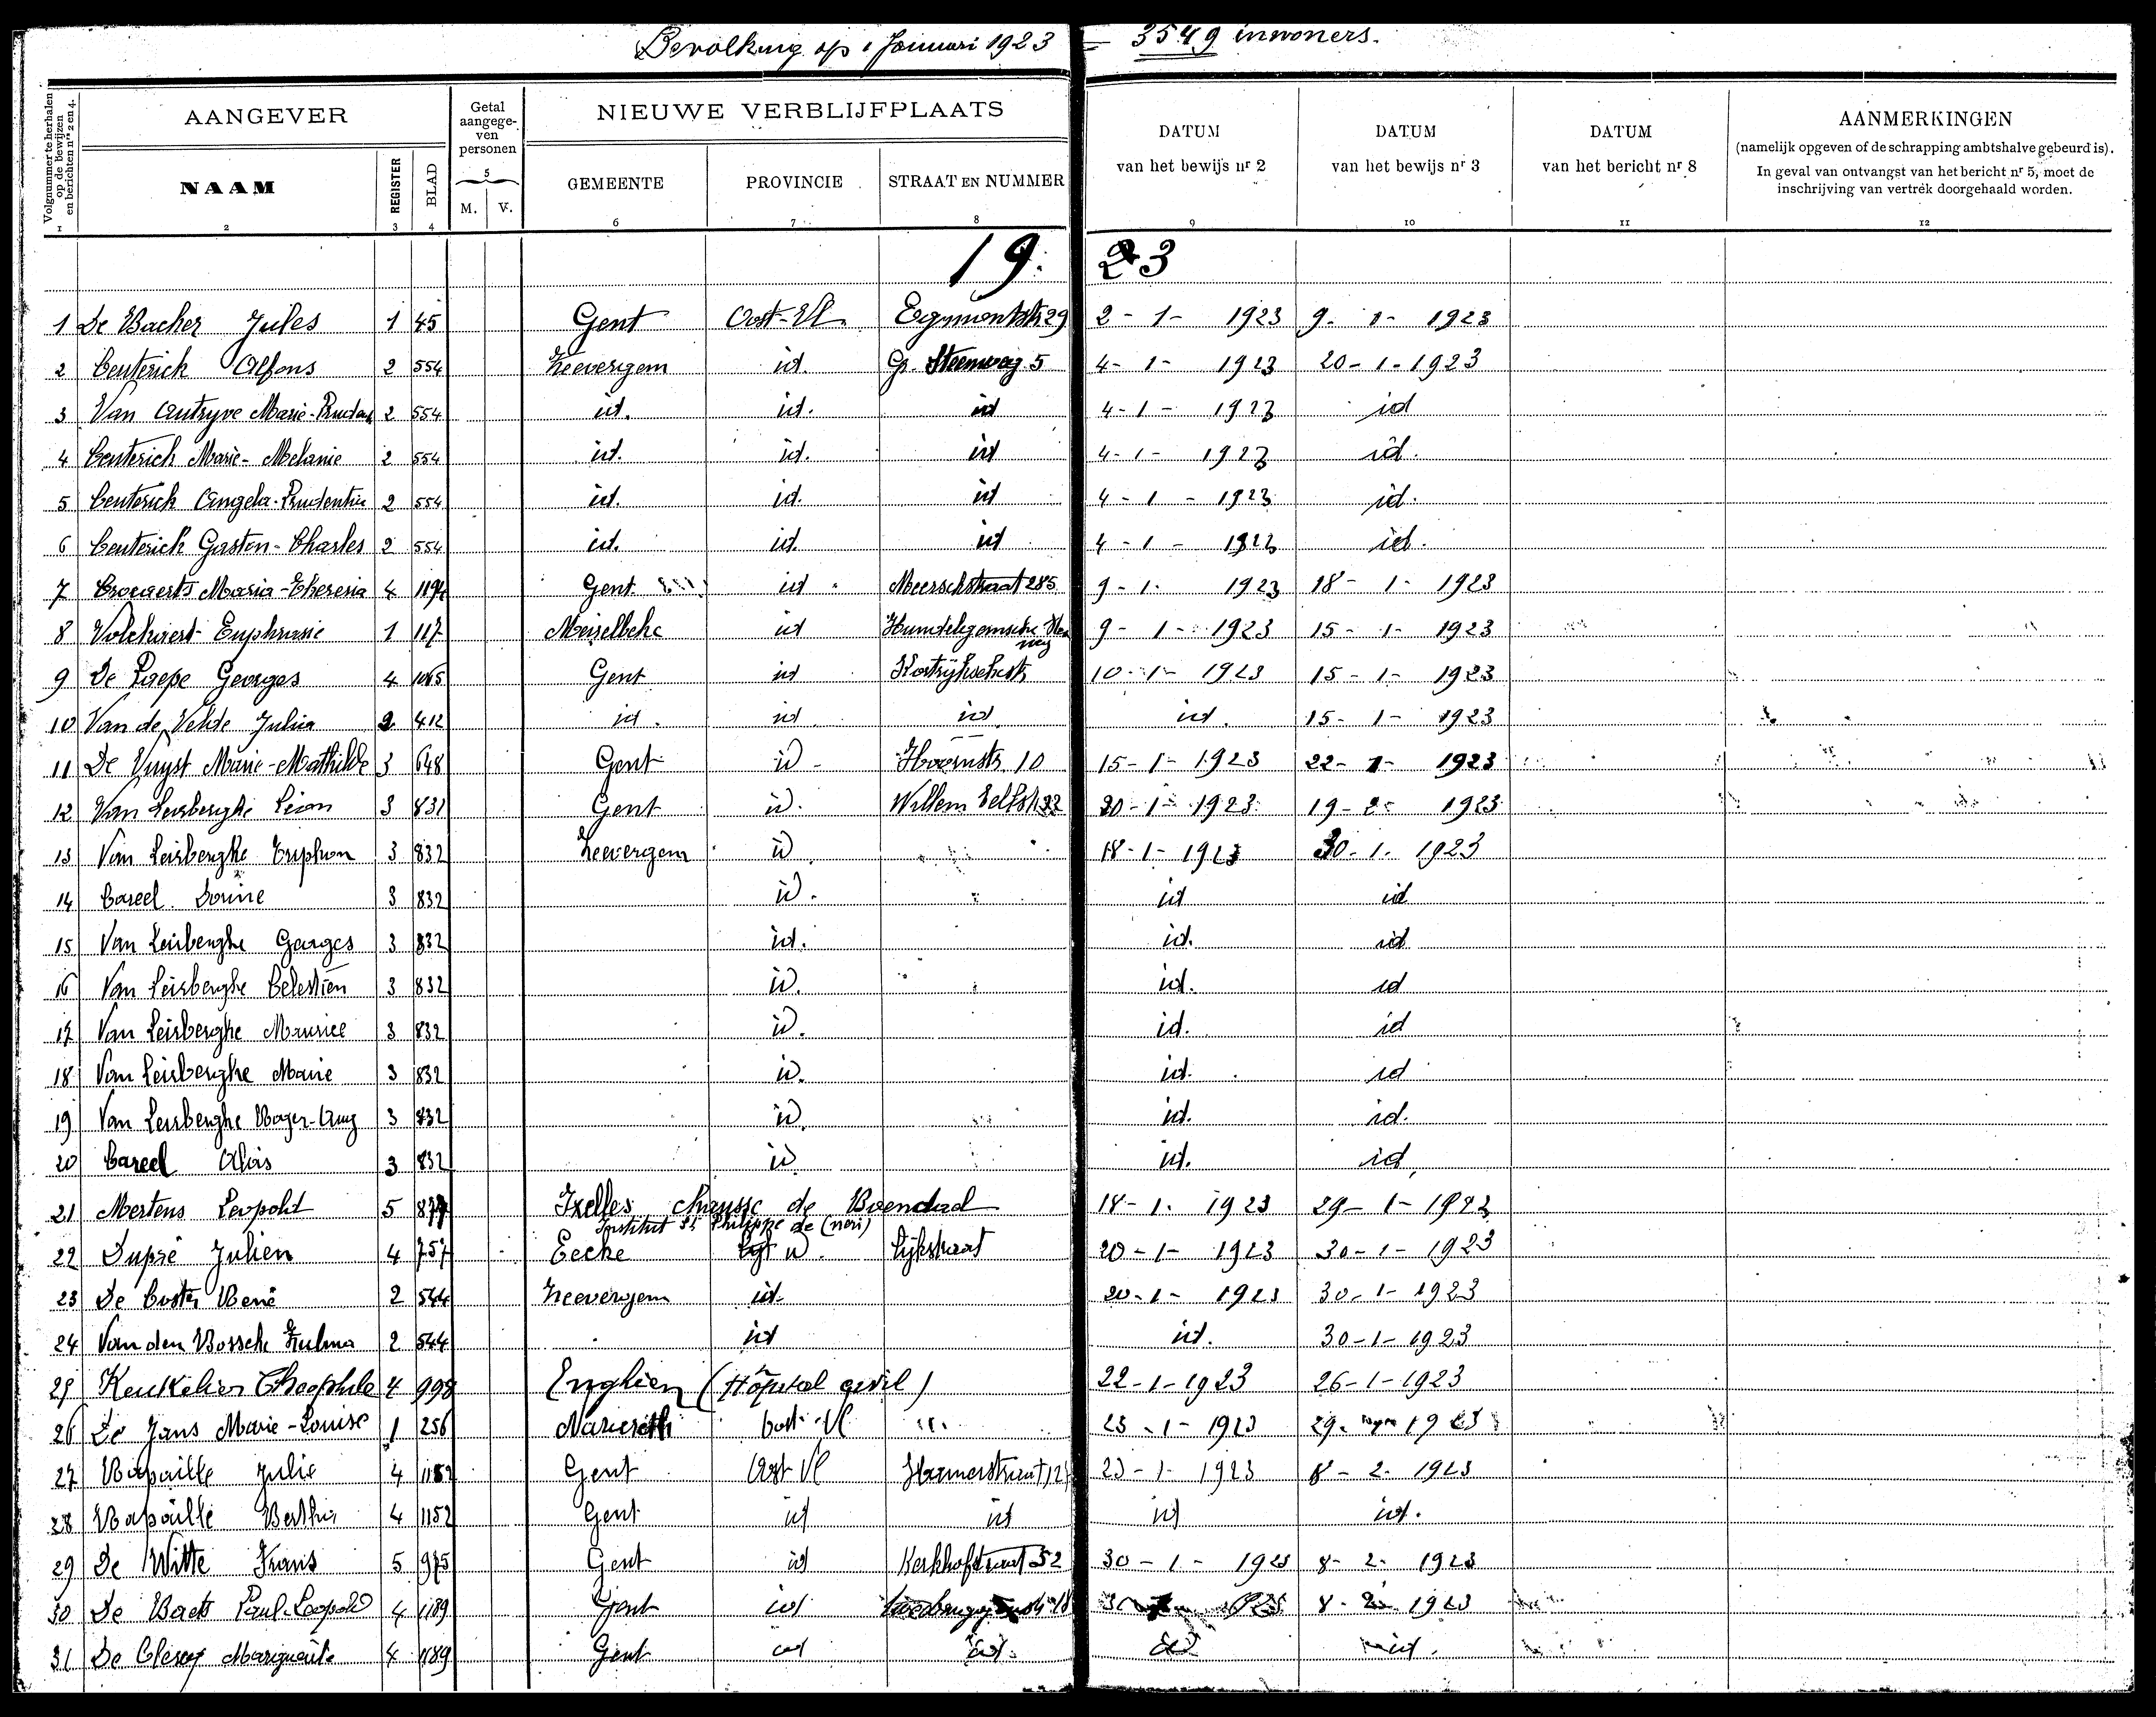 Bevolking op 1 Januari 1923 = 3549 inwoners.
Volgnummer te herhalen op de bewijzen en berichten nrs 2 en 4.
AANGEVER
Getal aangege-ven personen
NIEUWE VERBLIJFPLAATS
DATUM van het bewijs nr 2
DATUM van het bewijs nr 3
DATUM van het bericht nr 8
AANMERKINGEN
(namelijk opgeven of de schrapping ambtshalve gebeurd is).
In geval van ontvangst van het bericht nr 5, moet de
inschrijving van vertrek doorgehaald worden.
NAAM REGISTER BLAD 5 M. V. GEMEENTE PROVINCIE STRAAT EN NUMMER
1 2 3 4 6 7 8 9 10 11 12
19. 23
1 De Backer Jules 1 45 Gent Oost-Vl. Egmontstr 29 2-1-1923 9-1-1923
2 Ceuterick Alfons 2 554 Zeevergem id. Gr. Steenweg 5 4-1-1923 20-1-1923
3 Van Autryve Marie- 2 554 id. id. id 4-1-1923 id
4 Ceuterick Marie-Melanie 2 554 id. id. id 4-1-1923 id.
5 Ceuterick Angela-Prudentia 2 554 id. id. id 4-1-1923 id.
6 Ceuterick Gaston-Charles 2 554 id. id. id 4-1-1923 id.
7 Maria-Theresia 4 1194 Gent id Meerschstraat 285 9-1-1923 18-1-1923
8 Volckaert Euphrasie 1 117 Meirelbeke id 9-1-1923 15-1-1923
9 De Paepe Georges 4 1065 Gent id Kortrijkschestr 10-1-1923 15-1-1923
10 Van de Velde Julia 2 412 id. id id id. 15-1-1923
11 De Vuyst Marie-Mathilde 3 648 Gent id Hoornstr. 10 15-1-1923 22-1-1923
12 Van Leirberghe Leon 3 831 Gent id. Willem 20-1-1923 19-2-1923
13 Van Leirberghe Triphon 3 832 Zeevergem id 18-1-1923 30-1-1923
14 Careel 3 832 id. id id
15 Van Leirberghe Georges 3 832 id. id. id
16 Van Leirberghe Celestien 3 832 id. id. id
17 Van Leirberghe Maurice 3 832 id. id. id
18 Van Leirberghe Marie 3 832 id. id. id
19 Van Leirberghe Roger-Aug 3 832 id. id. id.
20 Careel Aloïs 3 832 id id. id.
21 Mertens Leopold 5 Ixelles chausse de Boendael 18-1-1923 29-1-1923
Institut St Philippe de (neri)
22 Dupré Julien 4 757 Eecke id. Lijkstraat 20-1-1923 30-1-1923
23 De Coster René 2 544 Zeevergem id. 20-1-1923 30-1-1923
24 Van den Bossche Zulma 2 544 id id. 30-1-1923
25 Keukelier Theophile 4 998 Enghien (Hôpital civil) 22-1-1923 26-1-1923
26 De Jans Marie-Louise 1 256 Nazareth Oost-Vl 23-1-1923 29. 1923
27 Rapaille Julie 4 1152 Gent Oost Vl 23-1-1923 8-2-1923
28 Rapaille Bertha 4 1152 Gent id id id id.
29 De Witte Frans 5 975 Gent id Kerkhofstraat 52 30-1-1923 8-2-1923
30 De Baets Paul-Leopold 4 1189 Gent id 8-2-1923
31 De Clercq Marguerite 4 1189 Gent id id. id id.